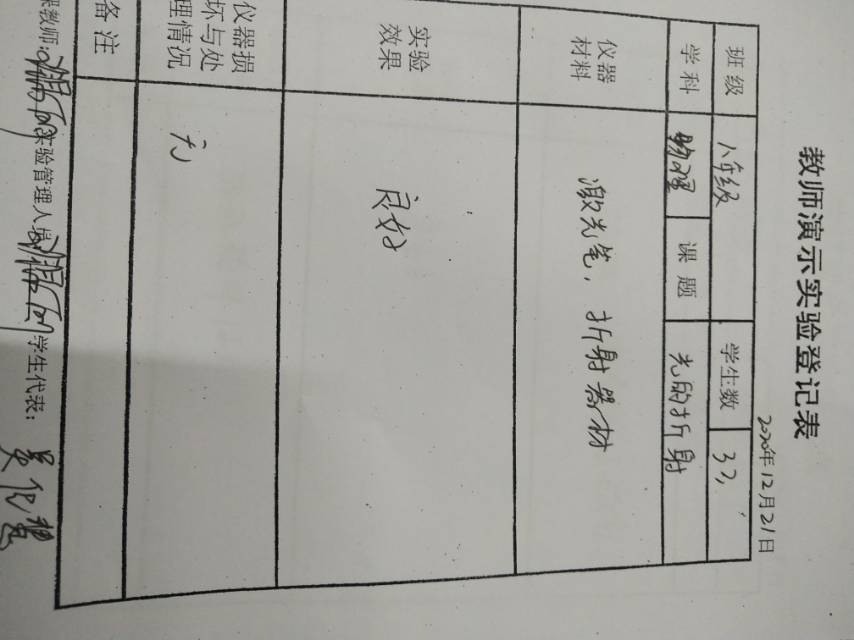 教师演示实验登记表
2020年12月21日
班级 八年级 学生数 32
学科 物理 课题 光的折射
仪器材料 激光笔，折射器材
实验效果 良好
仪器损坏与处理情况 无
备注
课教师: 实验管理人员 学生代表: